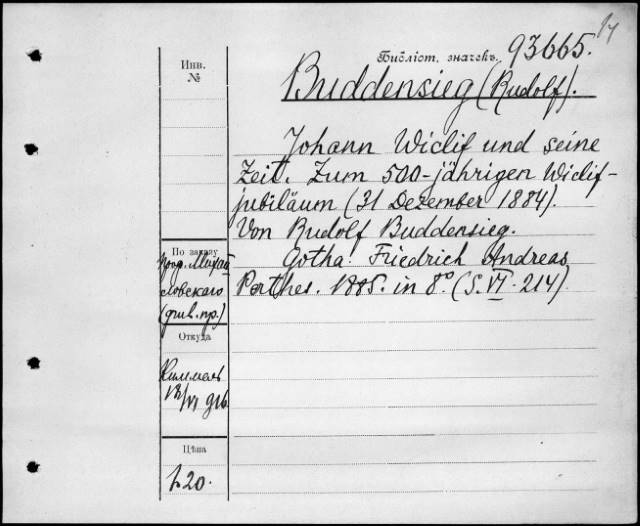 14
Библіот. значекъ. 93665.
Инв.
№
Buddensieg (Rudolf).
Johann Wiclif und seine
Zeit. Zum 500-jährigen Wiclif-
jubiläum (31 Dezember 1884).
Von Rudolf Buddensieg.
Gotha. Friedrich Andreas
Perthes. 1885. in 8° (S. VI-214).
По заказу
словскаго
Откуда
Киммель
Цѣна
1.20.